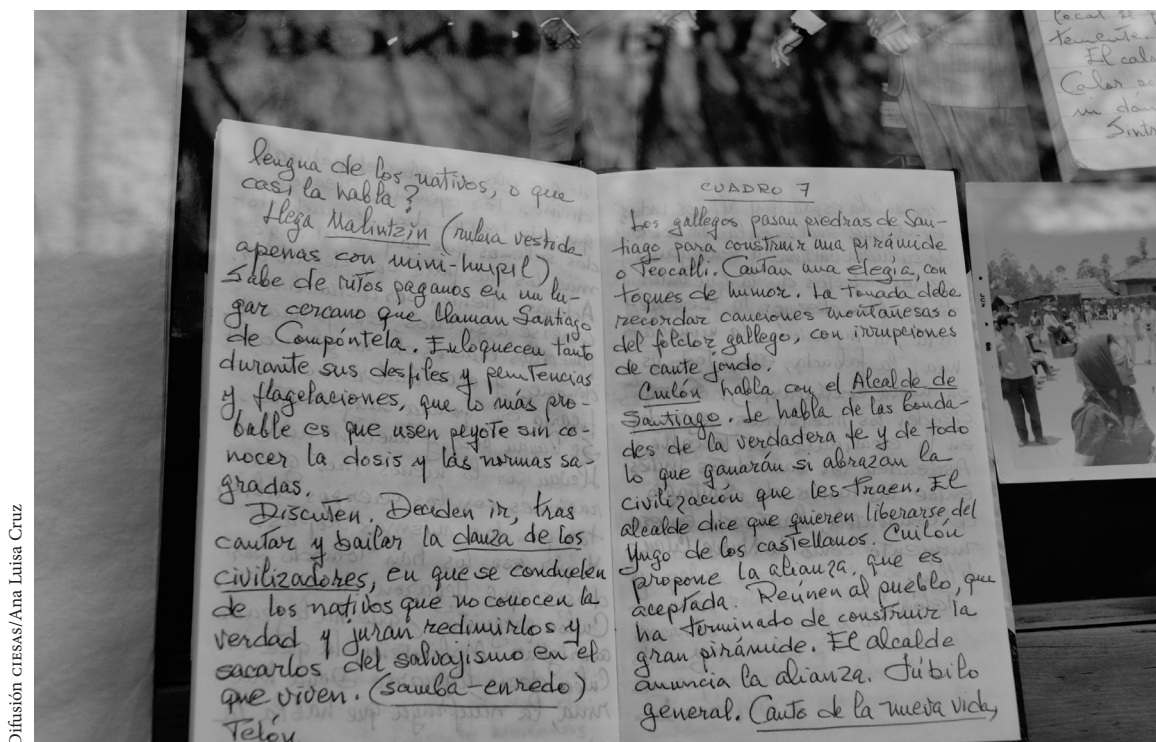 Difusión CIESAS/Ana Luisa Cruz
lengua de los nativos, o que
casi la habla?
Llega Malintzin (rubia vestida
apenas con mini-huipil),
Sabe de ritos paganos en un lu-
gar cercano que llaman Santiago
de Compóntela. Enloquecen tanto
durante sus desfiles y penitencias
y flagelaciones, que lo más pro-
bable es que usen peyote sin co-
nocer la dosis y las normas sa-
gradas.
Discuten. Deciden ir, tras
cantar y bailar la danza de los
civilizadores, en que se conduelen
de los nativos que no conocen la
verdad y juran redimirlos y
sacarlos del salvajismo en el
que viven. (samba-enredo)
Telón
CUADRO 7
Los gallegos pasan piedras de San-
tiago para construir una pirámide
o Teocalli. Cantan una elegía, con
toques de humor. La tonada debe
recordar canciones montañesas o
del folclor gallego, con irrupciones
de cante jondo.
Cuilón habla con el Alcalde de
Santiago. Le habla de las bonda-
des de la verdadera fe y de todo
lo que ganarán si abrazan la
civilización que les traen. El
alcalde dice que quieren liberarse del
yugo de los castellanos. Cuilón
propone la alianza, que es
aceptada. Reúnen al pueblo, que
ha terminado de construir la
gran pirámide. El alcalde
anuncia la alianza. Júbilo
general. Canto de la nueva vida,
local se
El calo
Calor
mi